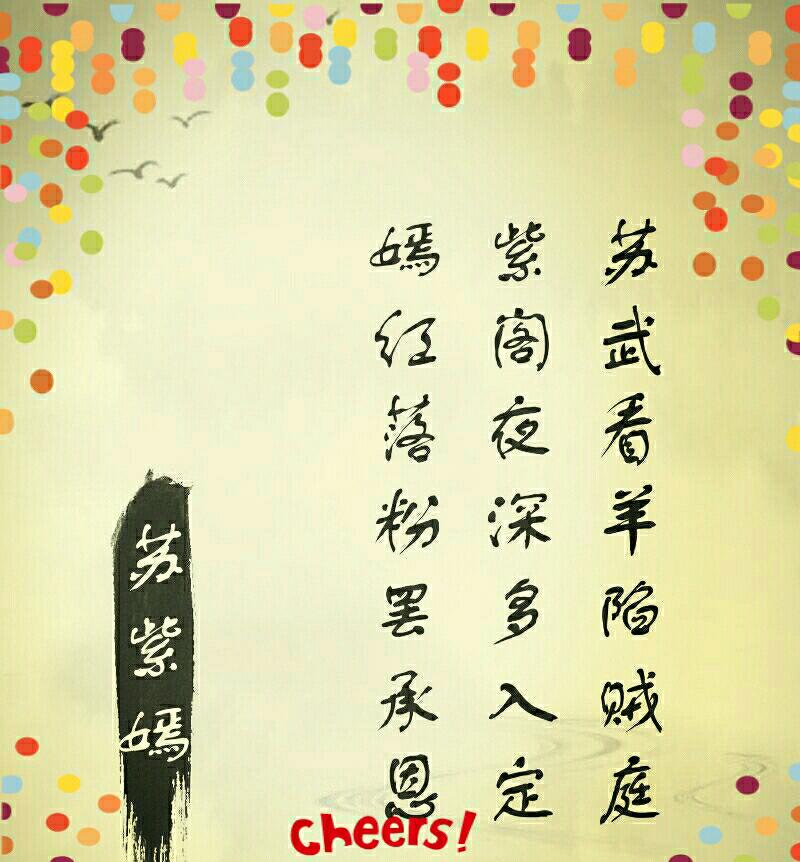 苏武看羊陷贼庭
紫阁夜深多入定
嫣红落粉罢承恩
苏紫嫣
Cheers!